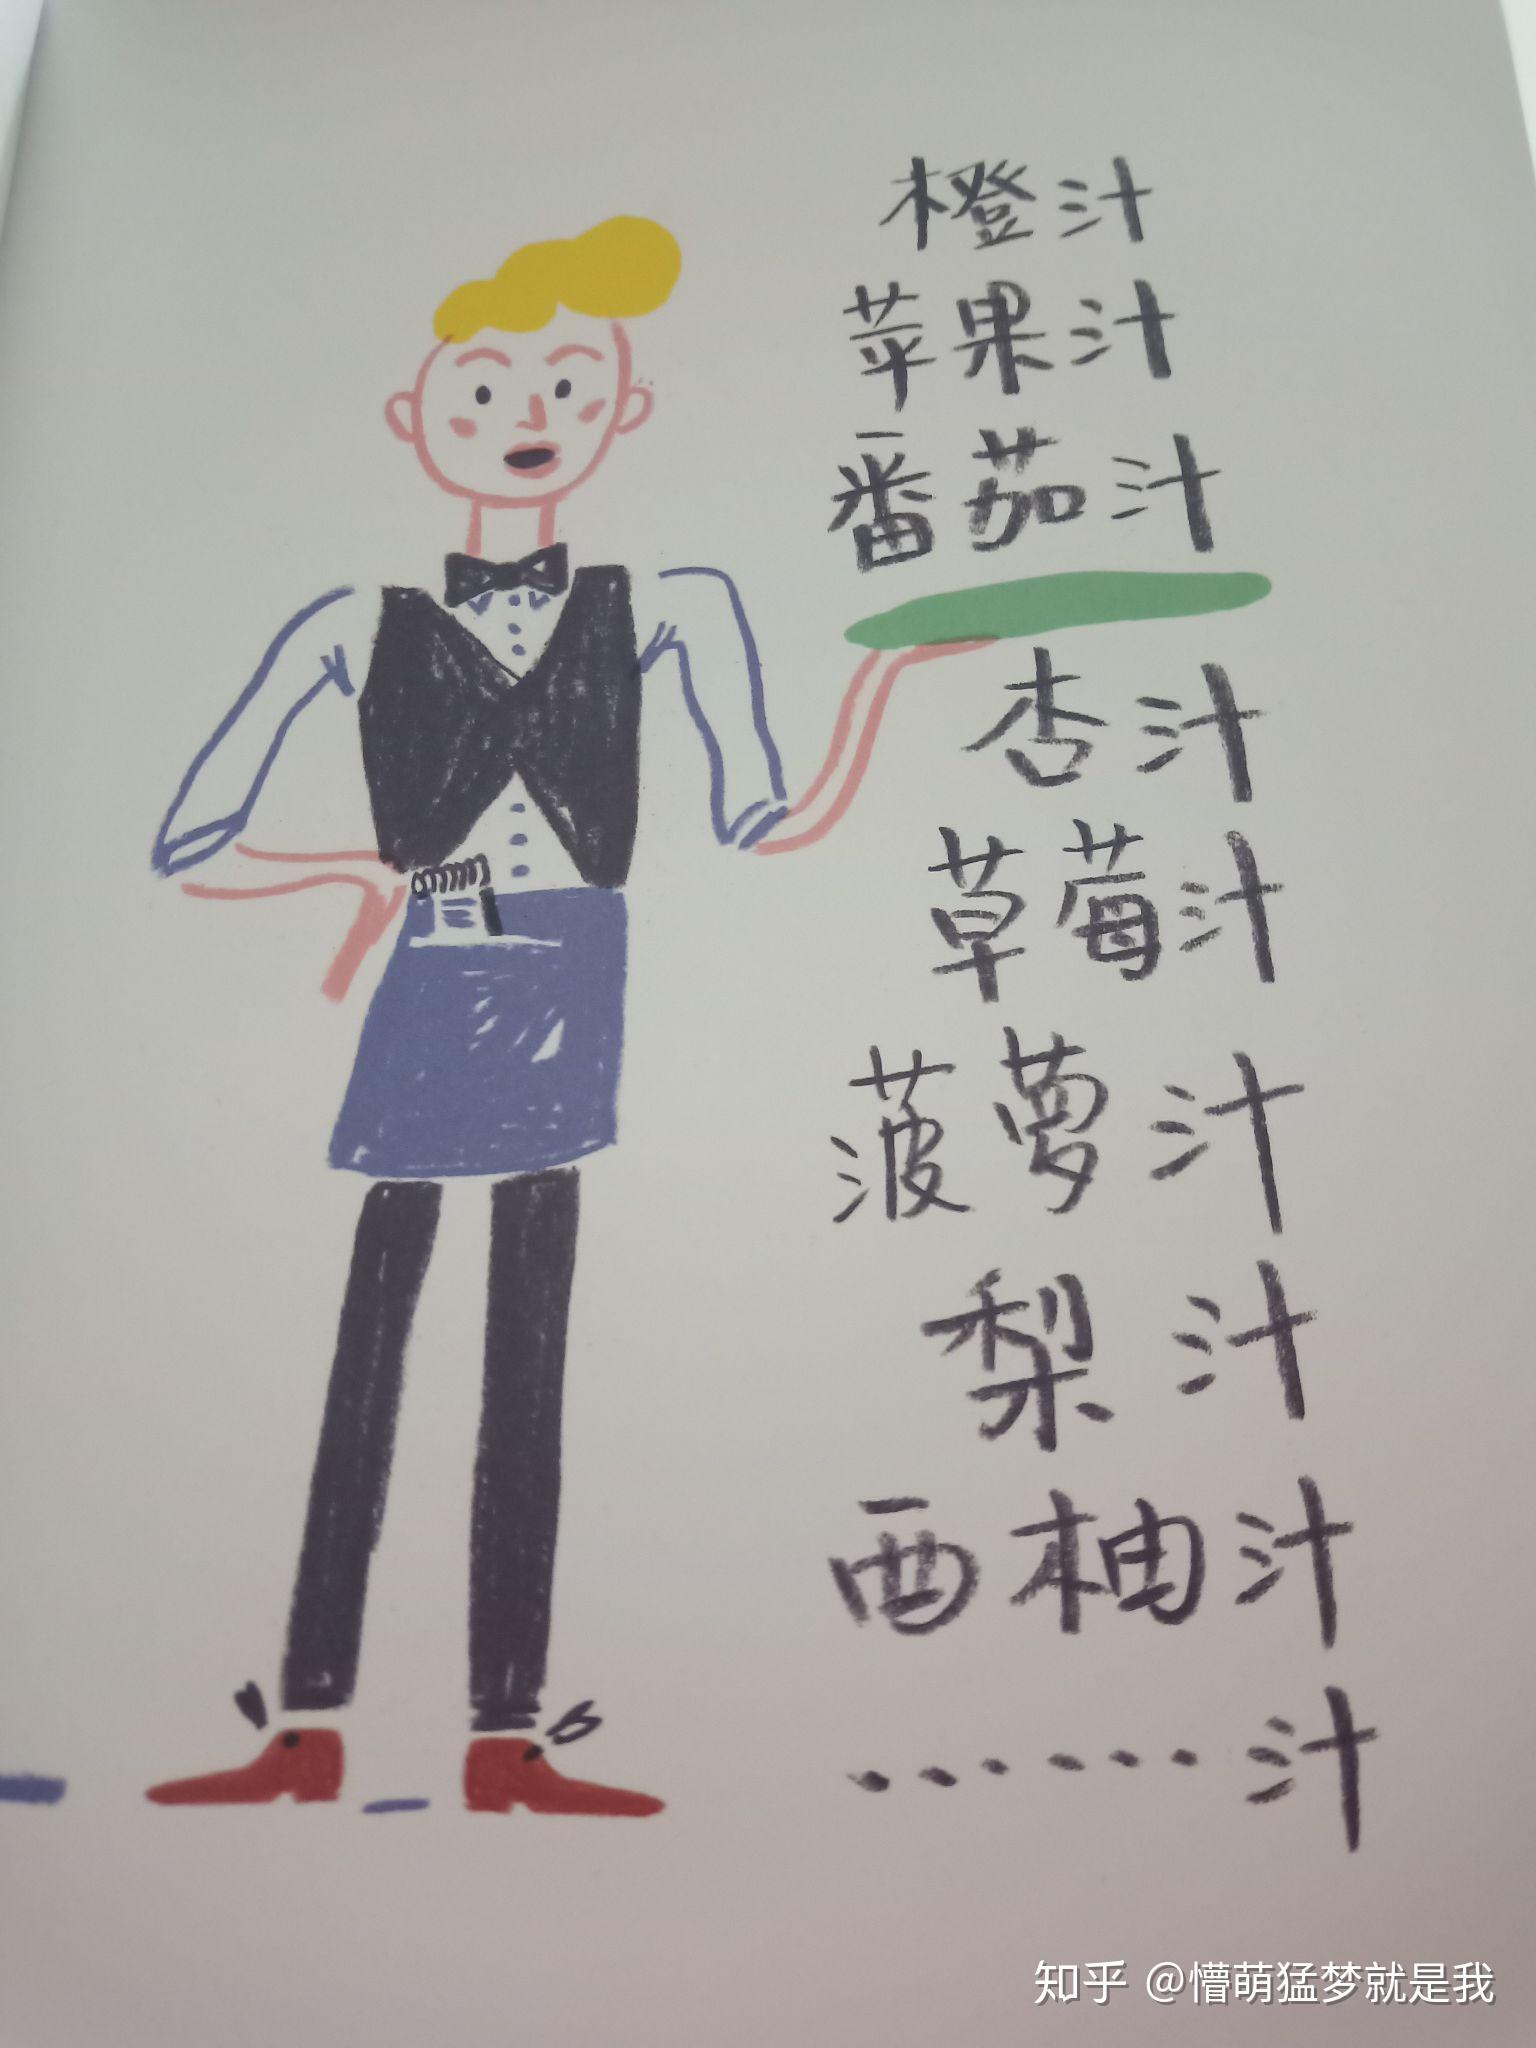 橙汁
苹果汁
番茄汁
杏汁
草莓汁
菠萝汁
梨汁
西柚汁
......汁
知乎 @懵萌猛梦就是我